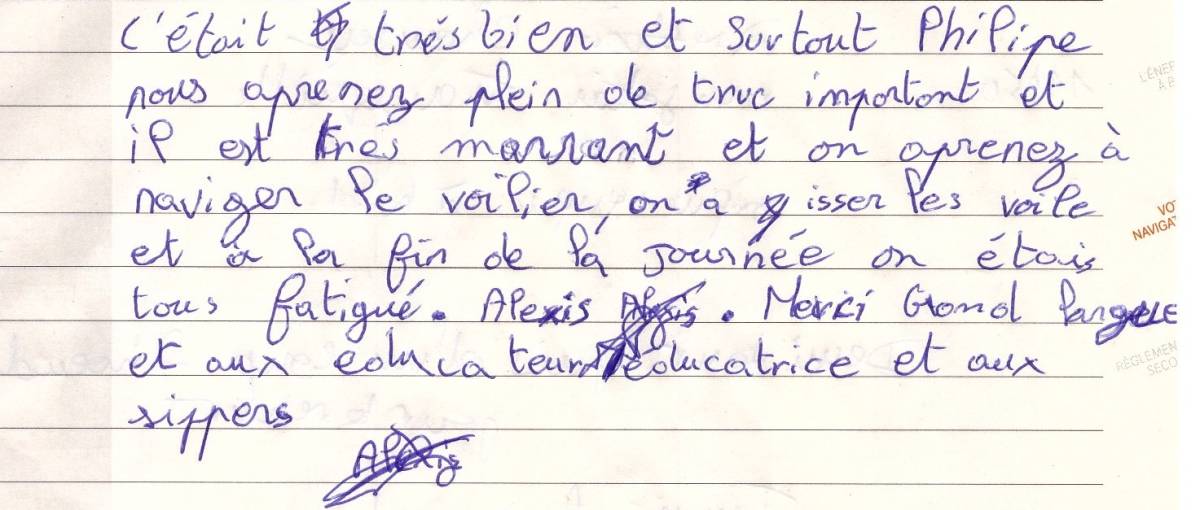 C'était très bien et surtout Philipe
nous aprenez plein de truc important et
il est très marrant et on aprenez à
naviger le voilier, on a isser les voile
et à la fin de la journée on étais
tous fatigué. Alexis Alexis. Merci Grand Largue
et aux educateur éducatrice et aux
sippers
Alexis
VO
NAVIGAT
RÈGLEMEN
SECO